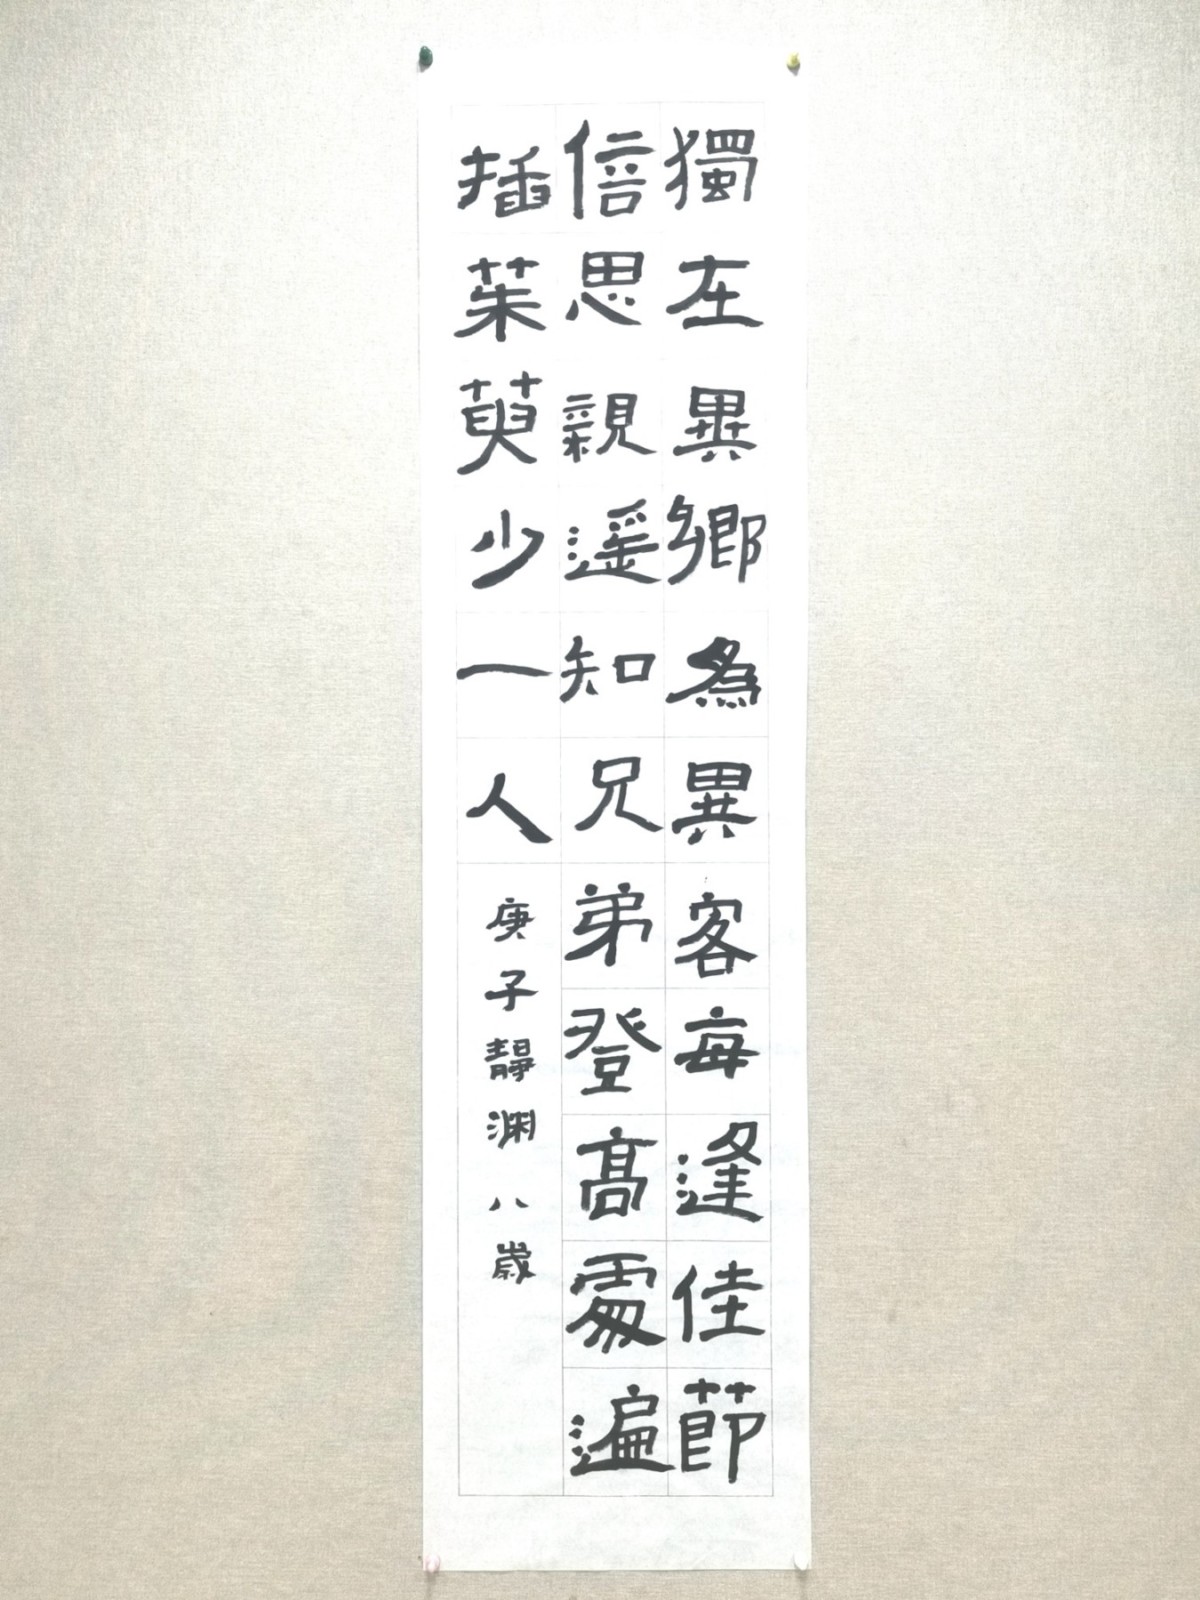 獨在異鄉為異客每逢佳節
倍思親遥知兄弟登高處遍
插茱萸少一人
庚子靜渊八歲